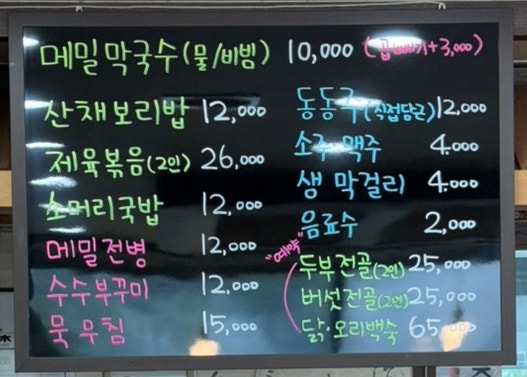 메밀막국수(물/비빔) 10,000 (곱빼기+3,000)
산채보리밥 12,000
제육볶음(2인) 26,000
소머리국밥 12,000
메밀전병 12,000
수수부꾸미 12,000
묵무침 15,000
동동주(직접담근)12,000
소주·맥주 4.000
생 막걸리 4.000
음료수 2,000
"예약"
두부전골(2인) 25,000
버섯전골(2인) 25,000
닭·오리백숙 65,000